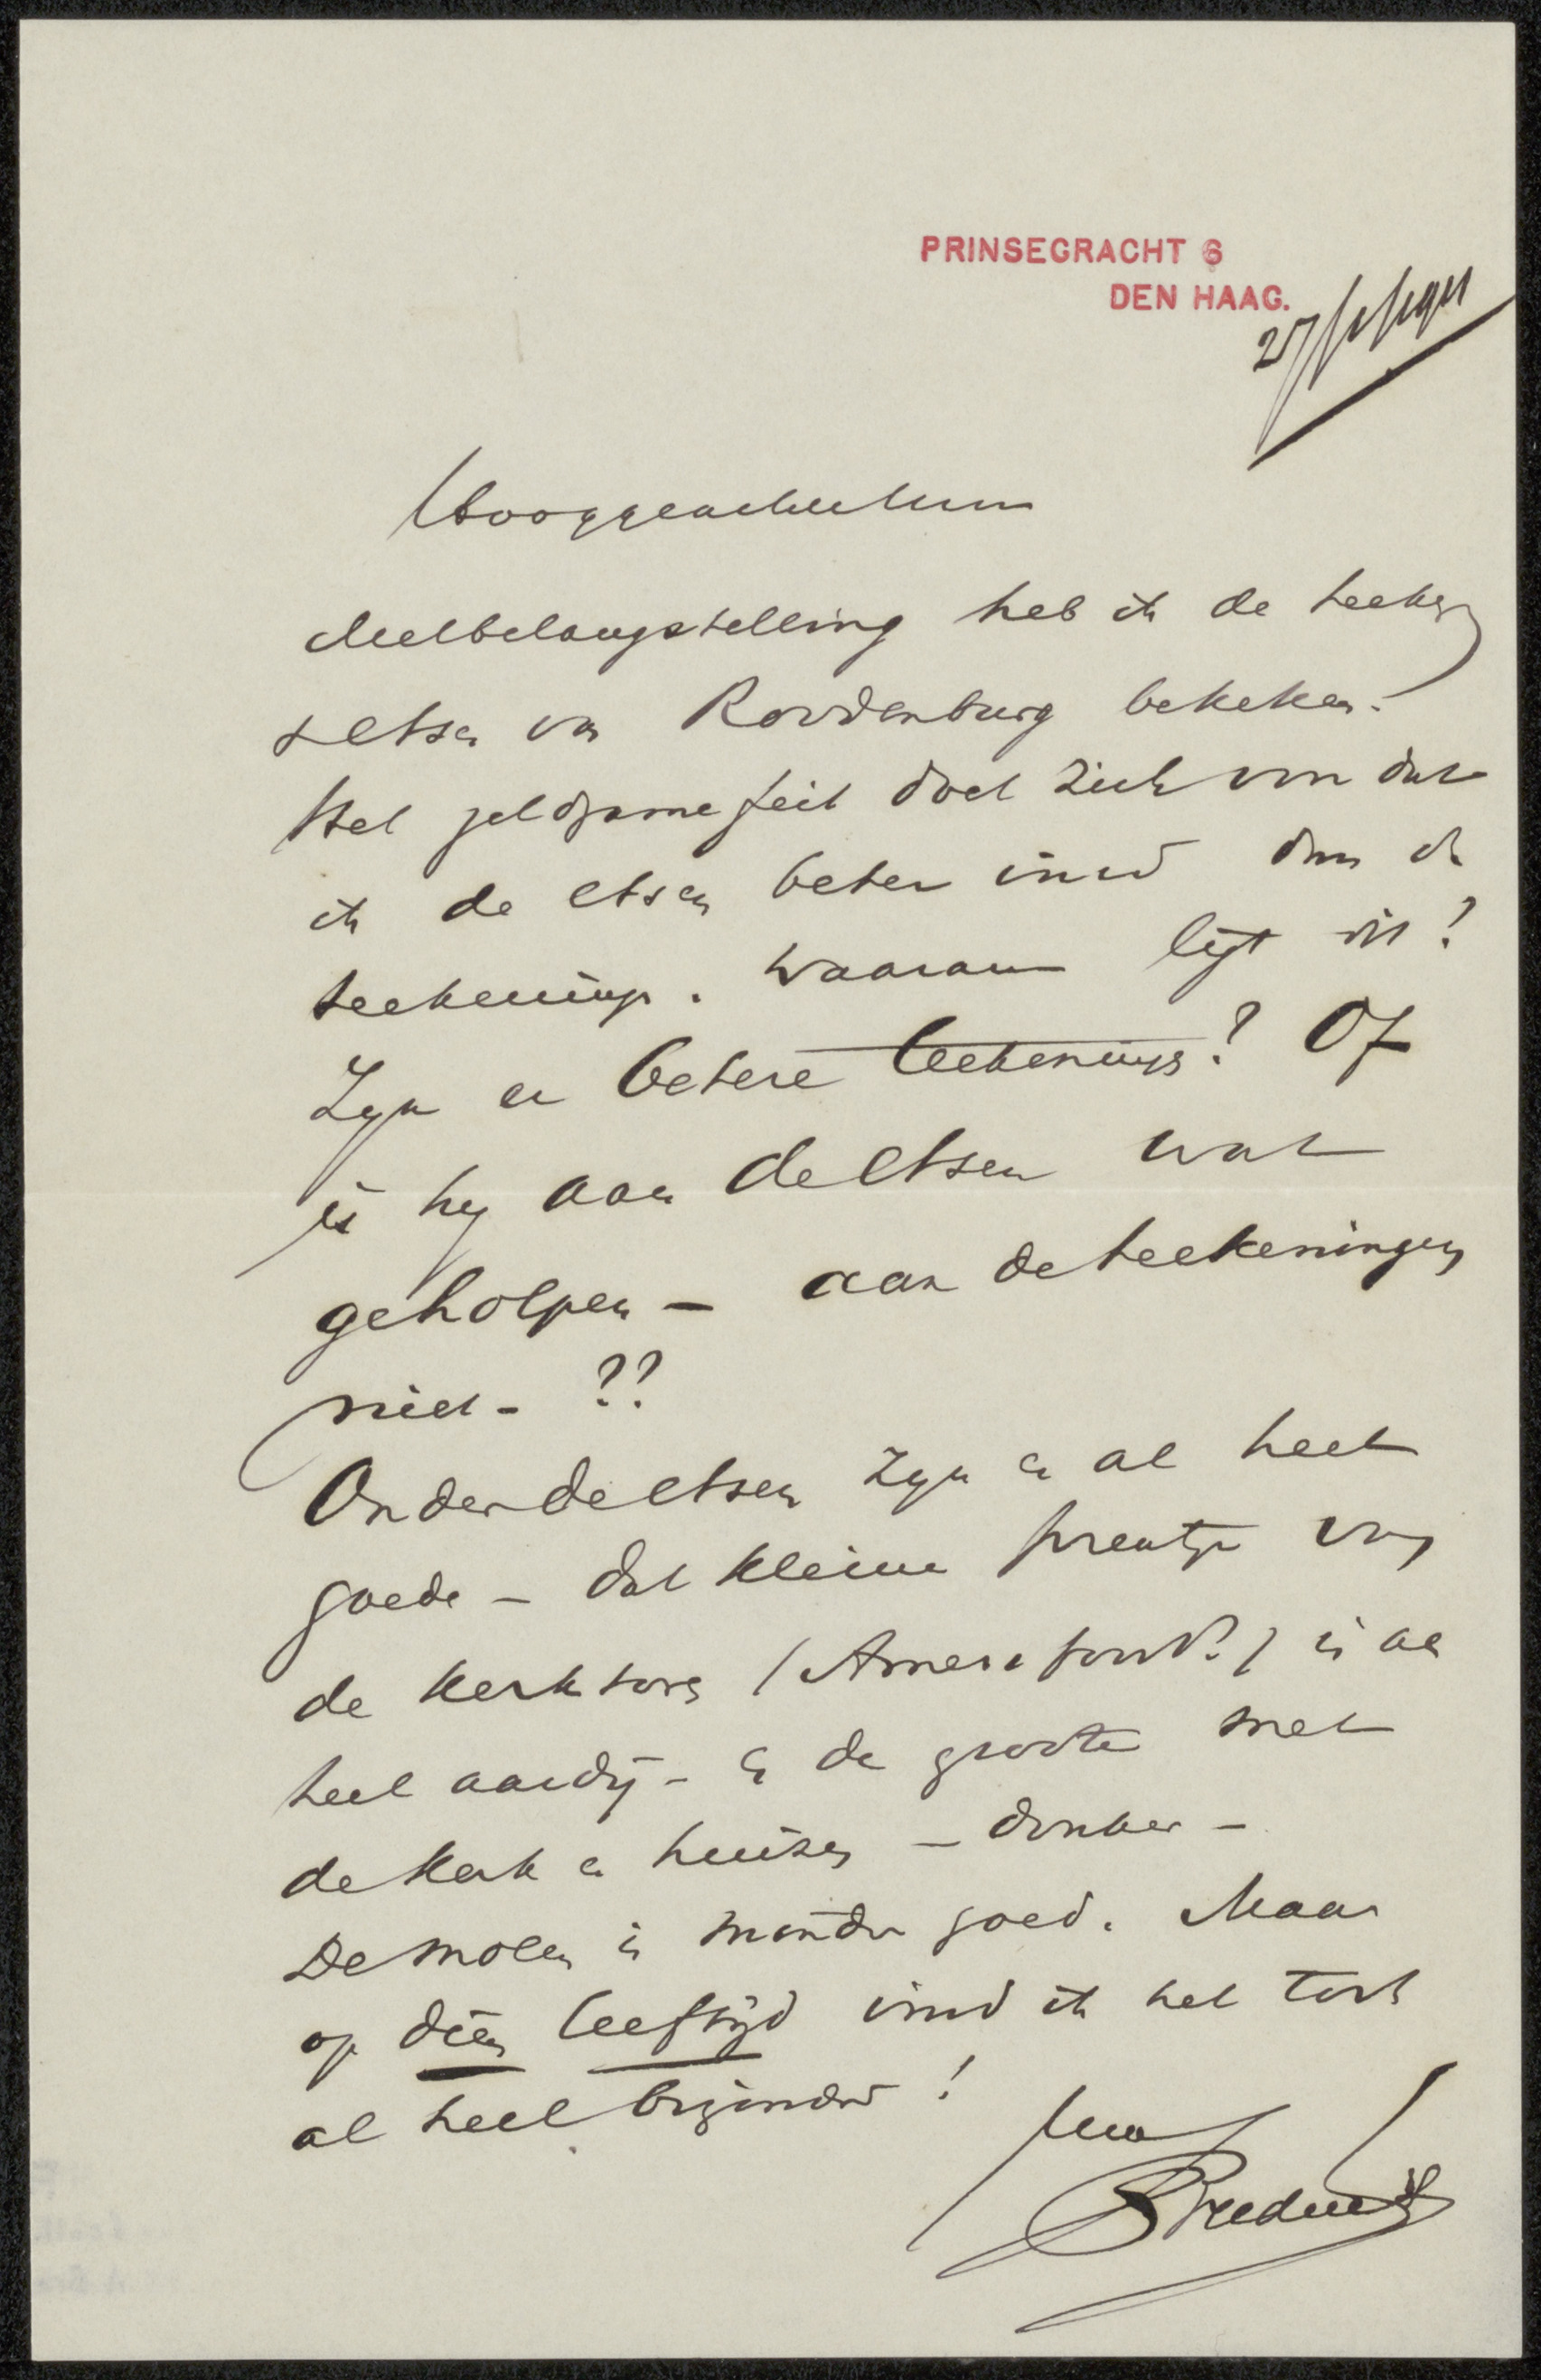 PRINSEGRACHT 6
DEN HAAG.
Hooggeachte
Met belangstelling heb ik de teeken
& etsen van Roodenburg bekeken.
Het zeldzame feit doet zich voor dat
ik de etsen beter vind dan de
teekeningen. Waaraan ligt dit?
Zyn er betere teekeningen? Of
is hy aan de etsen wat
geholpen – aan de teekeningen
niet – ??
Onder de etsen zyn er al heel
goede – dat kleine prentje van
de kerktoren (Amersfoort?) is al
heel aardig – en de groote met
de kerk en huizen – donker –
De molen is minder goed. Maar
op dien leeftijd vind ik het toch
al heel byzonder!
ABredius